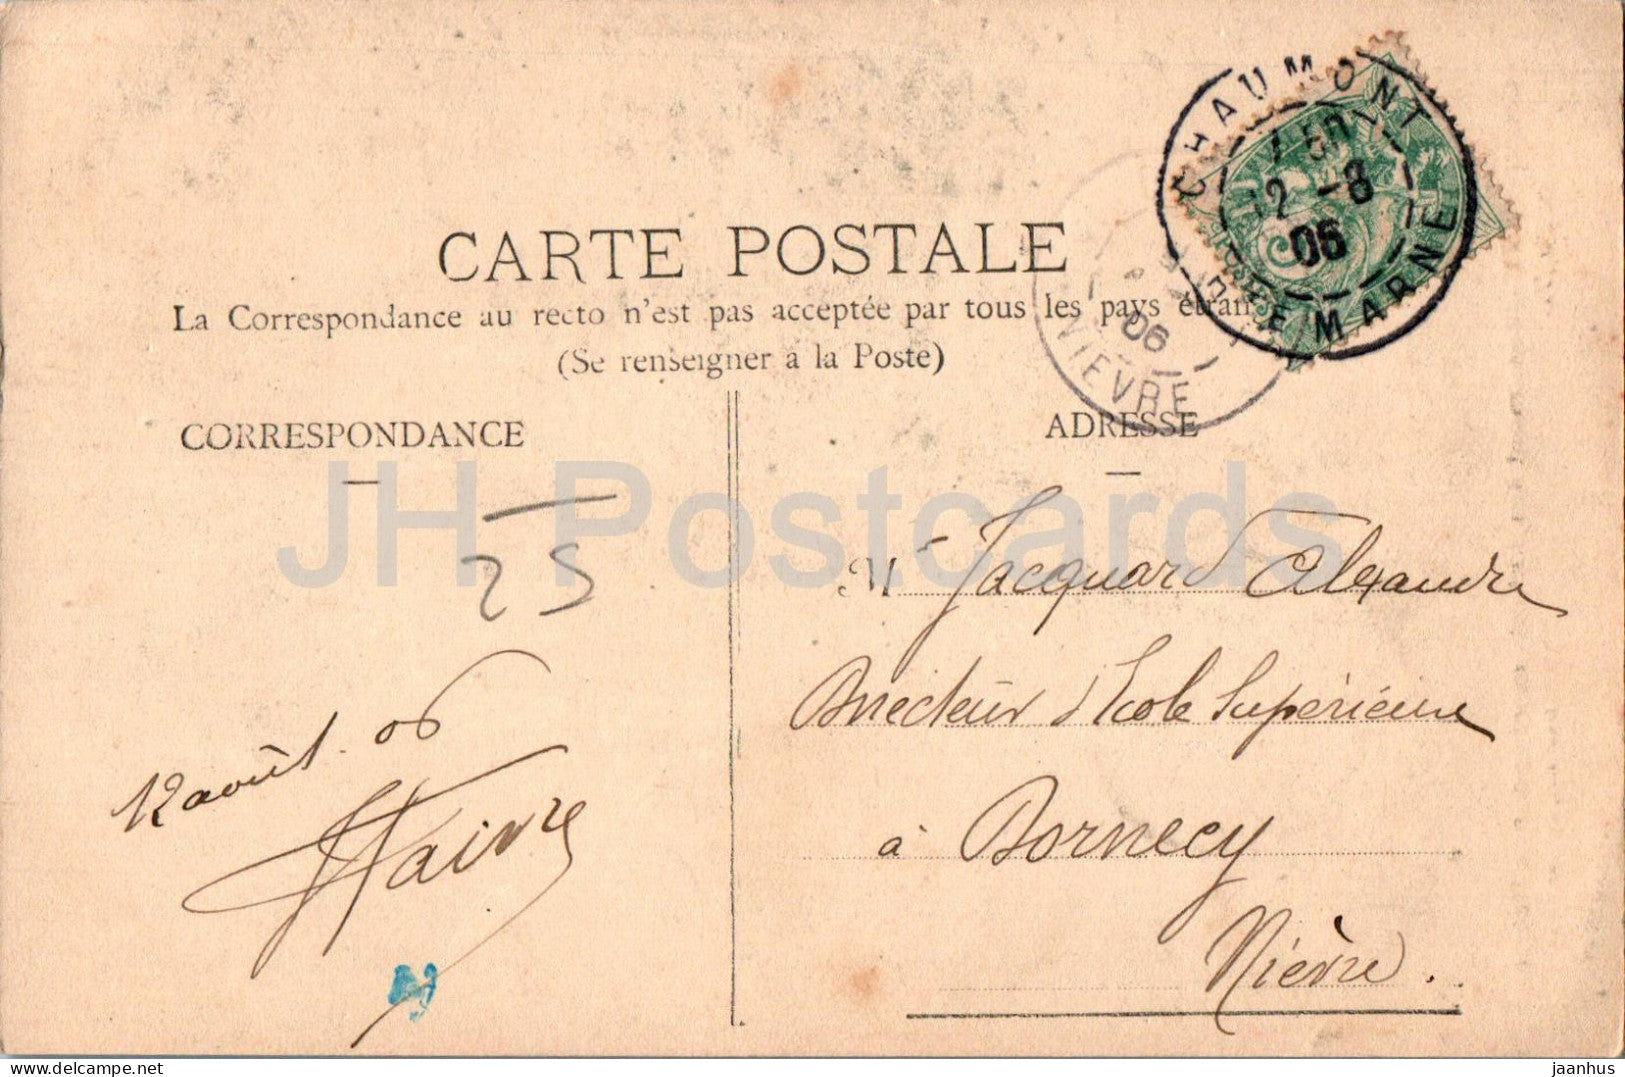 CARTE POSTALE
La Correspondance au recto n'est pas acceptée par tous les pays étran
(Se renseigner à la Poste)
CORRESPONDANCE
ADRESSE
CHAUMONT
12 -8
06
HTE MARNE
06
NIEVRE
JH Postcards
25
12 août 06
Mr Jacquard Alexandre
Directeur d'Ecole Supérieure
à Dornecy
Nièvre.
jaanhus
delcampe.net